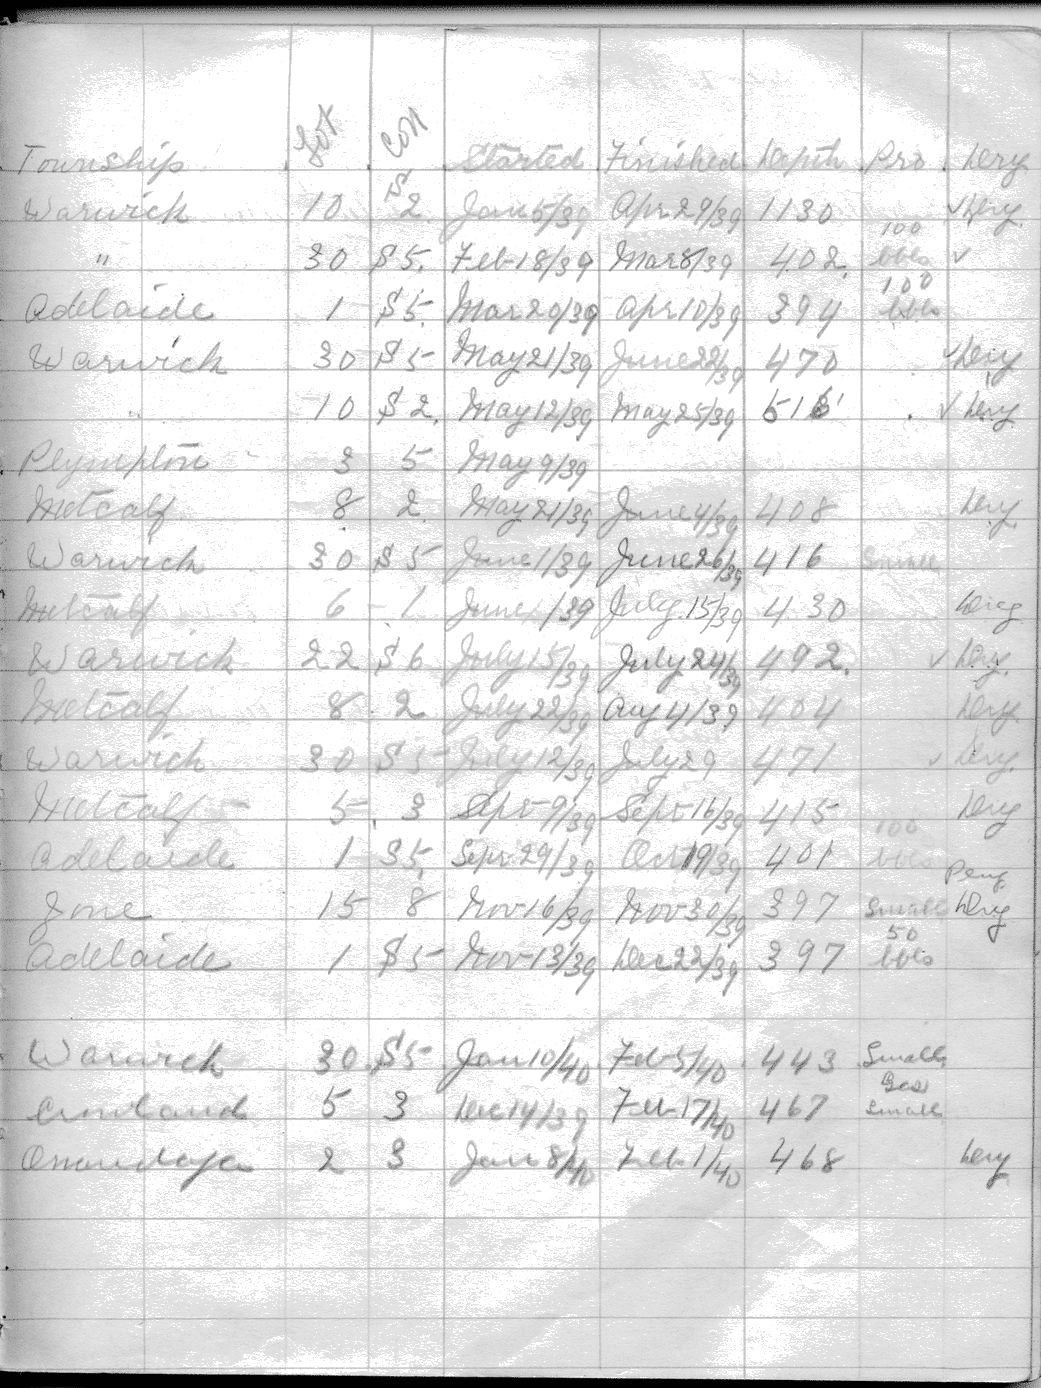 Township Lot Con Started Finished Depth Pro Dry
Warwick 10 S 2 Jan 5/39 Apr 29/39 1130 ✓ Dry
" 30 S 5. Feb 18/39 Mar 8/39 402. 100 bbls ✓
Adelaide 1 S 5. Mar 20/39 Apr 10/39 394 100 bbls
Warwick 30 S 5 May 21/39 June 22/39 470 ✓ Dry
" 10 S 2. May 12/39 May 25/39 516 ✓ Dry
Plympton 3 5 May 9/39
Metcalf 8 2 May 21/39 June 4/39 408 Dry
Warwick 30 S 5 June 1/39 June 26/39 416 Small
Metcalf 6 1 June /39 July 15/39 430 Dry
Warwick 22 S 6 July 15/39 July 24/39 492. ✓ Dry.
Metcalf 8 2 July 22/39 Aug 4/39 404 Dry
Warwick 30 S 5 July 12/39 July 29 471 ✓ Dry.
Metcalf 5 3 Sept 9/39 Sept 16/39 415 Dry
Adelaide 1 S 5. Sept 29/39 Oct 19/39 401 100 bbls
Zone 15 8 Nov 16/39 Nov 30/39 397 Small Dry
Adelaide 1 S 5 Nov 13/39 Dec 22/39 397 50 bbls
Warwick 30 S 5 Jan 10/40 Feb 5/40 443 Small
Crowland 5 3 Dec 14/39 Feb 17/40 467 Gas Small
Onondaga 2 3 Jan 8/40 Feb 1/40 468 Dry